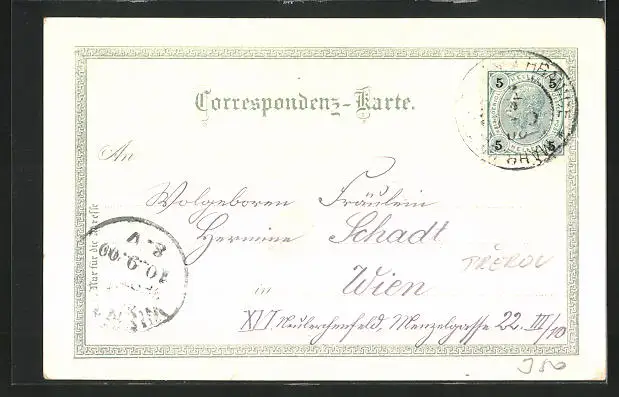 Correspondenz-Karte.
5 5
HELLER
5 5
An
Wolgeboren Fräulein
Hermine Schadt
PŘEROV
in Wien
XVI Neulerchenfeld, Menzelgasse 22. III/10
Nur für die Adresse
8. V
10. 9. 00
WIEN